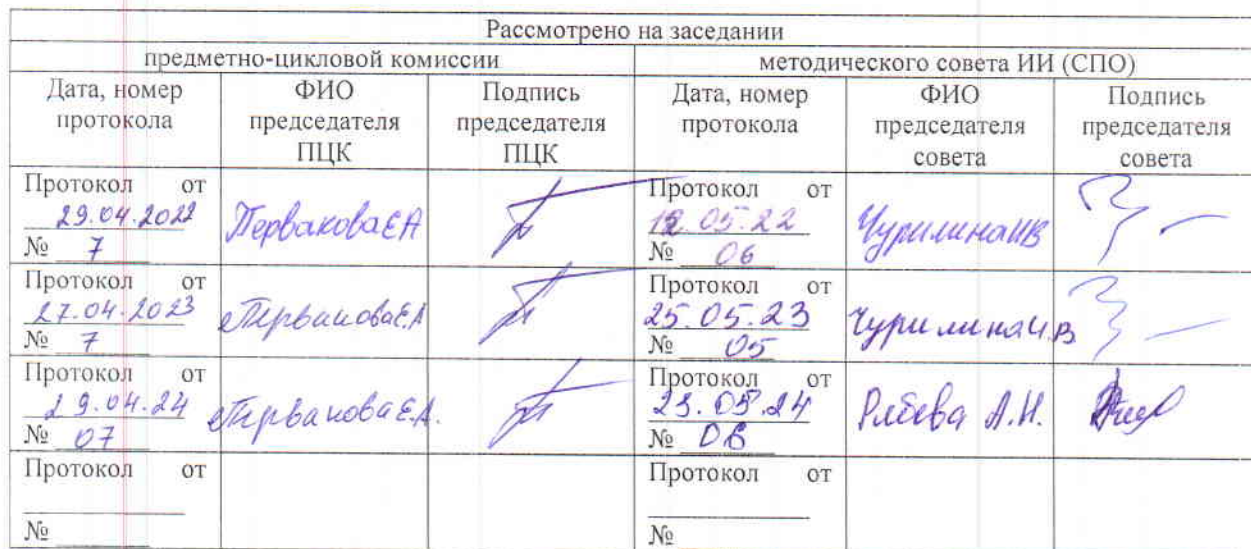 Рассмотрено на заседании
предметно-цикловой комиссии методического совета ИИ (СПО)
Дата, номер протокола ФИО председателя ПЦК Подпись председателя ПЦК Дата, номер протокола ФИО председателя совета Подпись председателя совета
Протокол от 29.04.2022 № 7 Первакова ЕА Протокол от 12.05.22 № 06 Чурилина ИВ
Протокол от 27.04.2023 № 7 Первакова Е.А Протокол от 25.05.23 № 05 Чурилина И.В
Протокол от 29.04.24 № 07 Первакова Е.А. Протокол от 23.05.24 № 06 А.Н.
Протокол от № Протокол от №